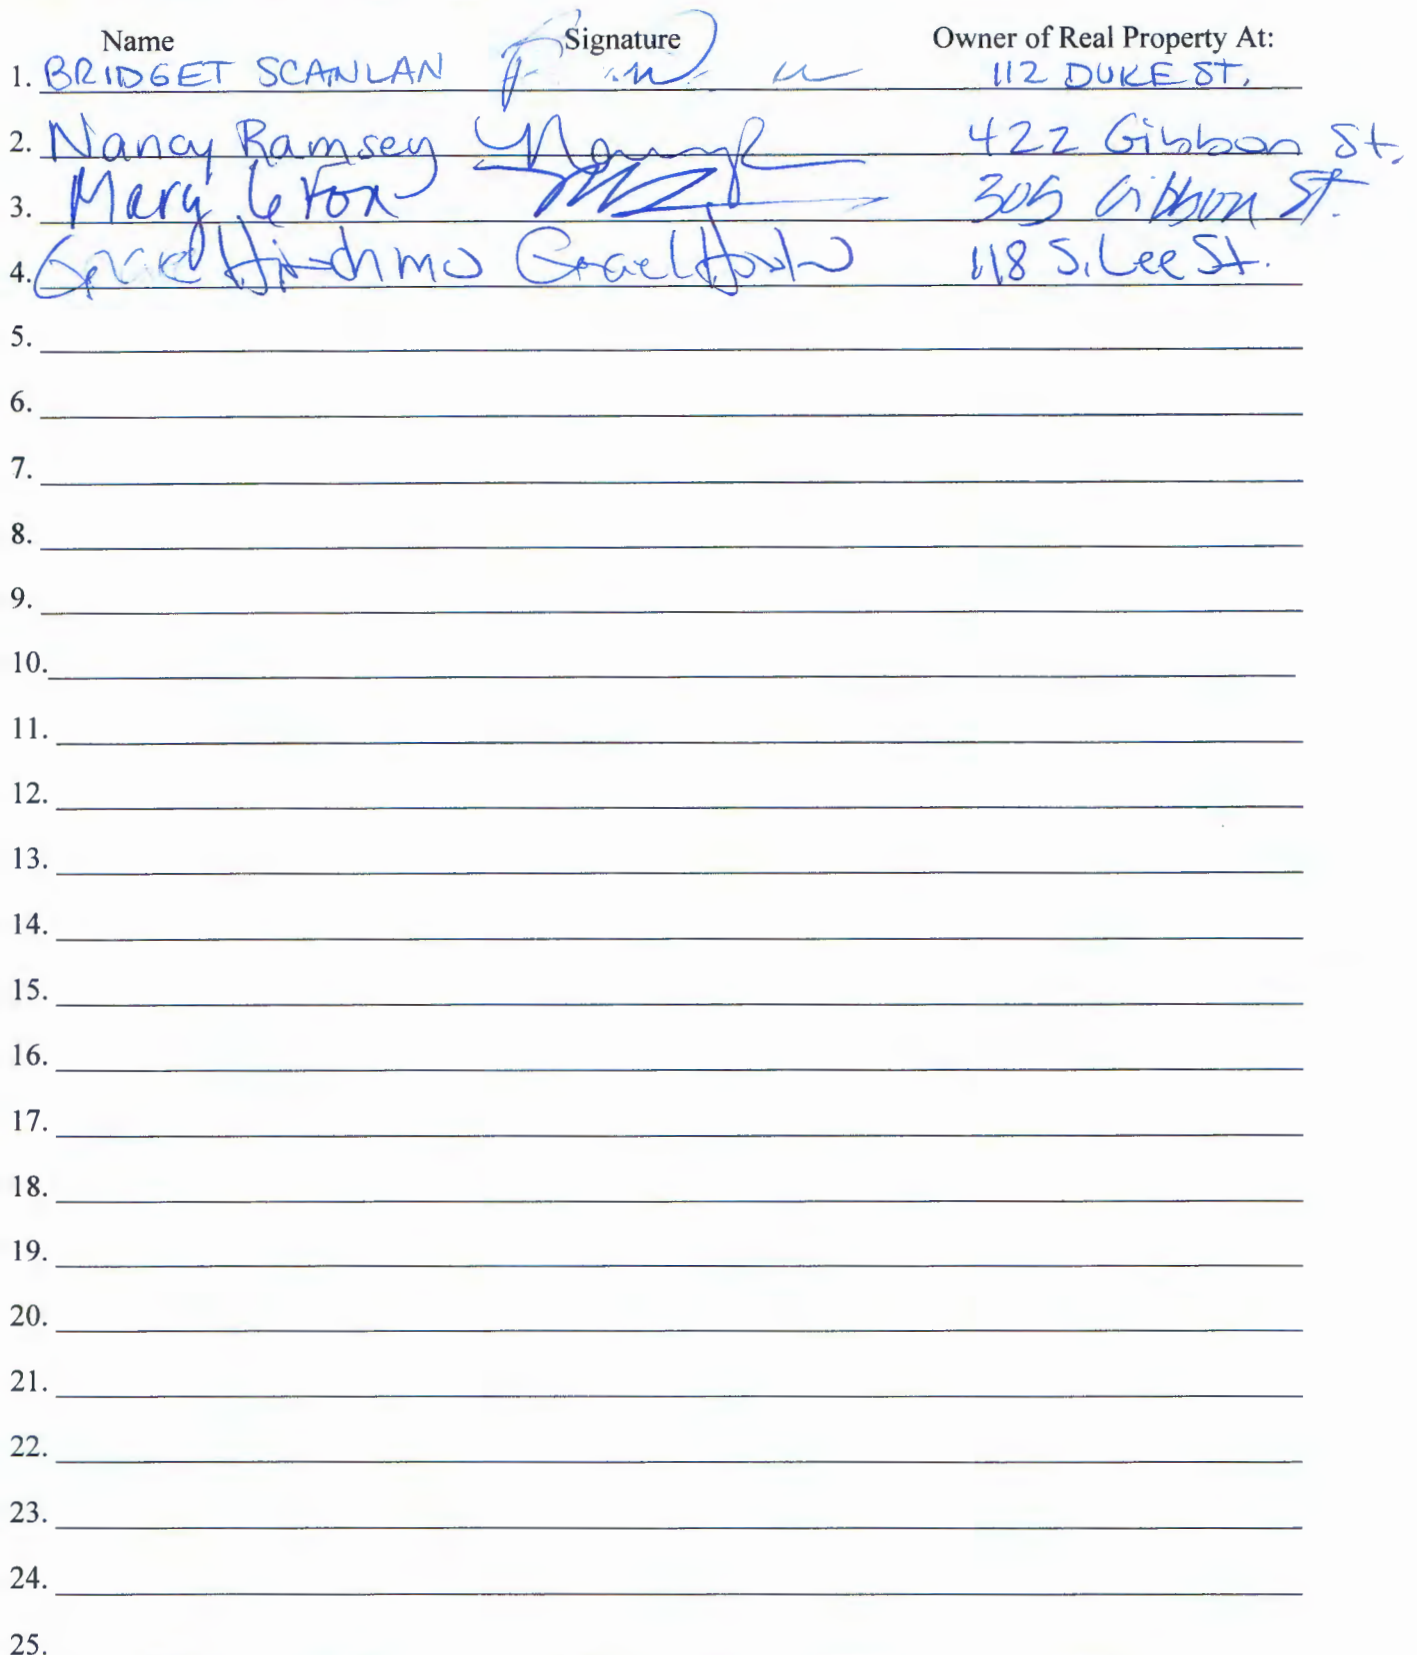 Name Signature Owner of Real Property At:
1. BRIDGET SCANLAN 112 DUKE ST.
2. Nancy Ramsey 422 Gibbon St.
3. Mary 305 Gibbon St.
4. 118 S. Lee St.
5.
6.
7.
8.
9.
10.
11.
12.
13.
14.
15.
16.
17.
18.
19.
20.
21.
22.
23.
24.
25.